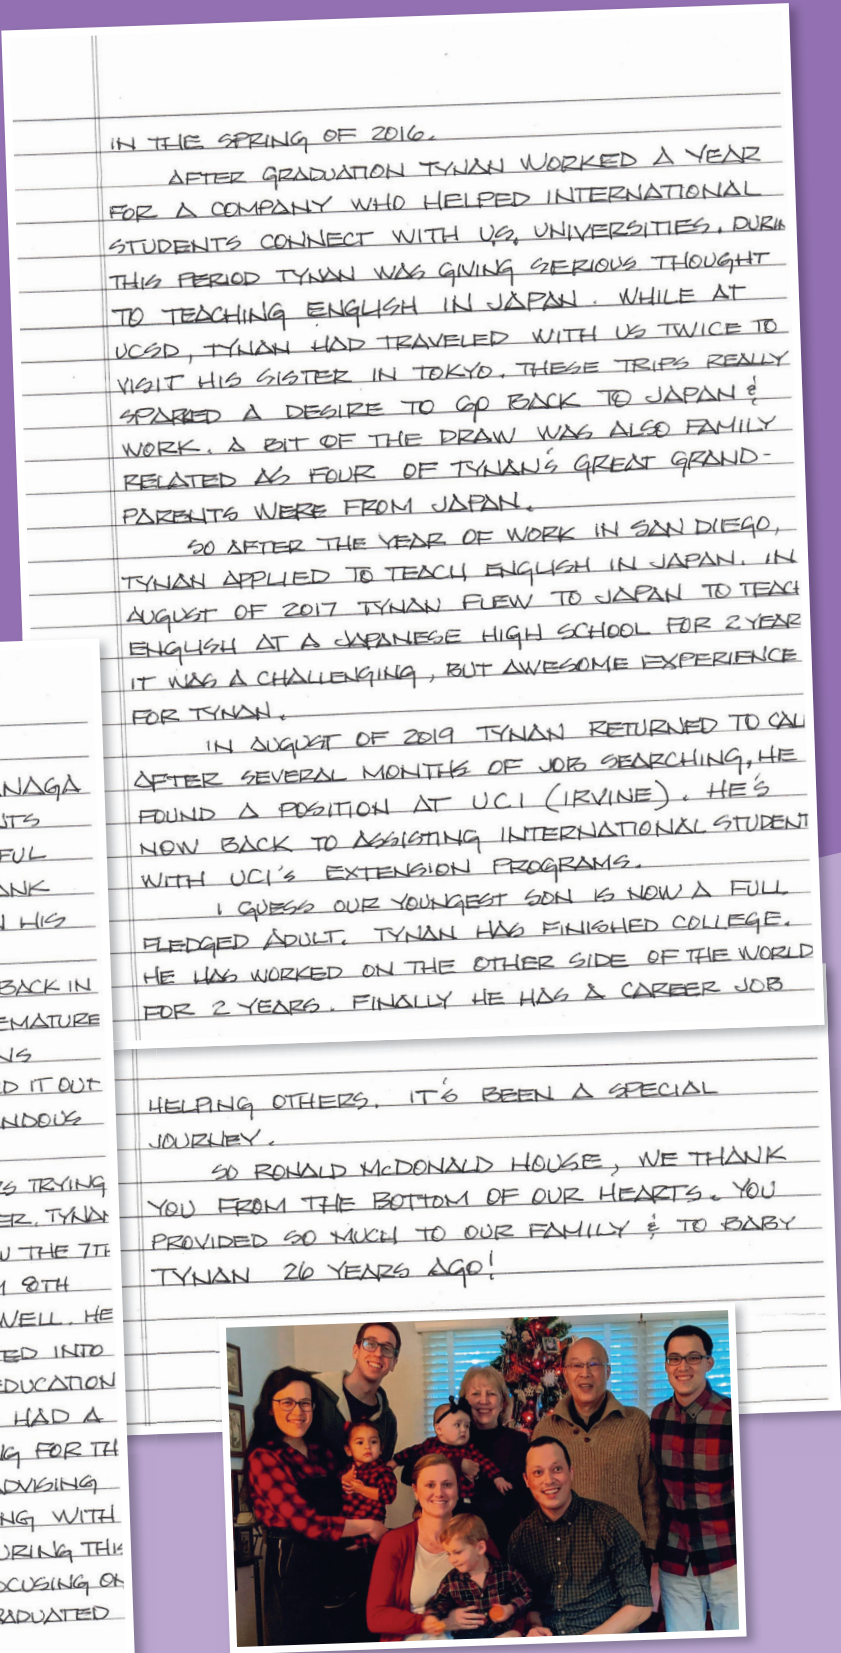 IN THE SPRING OF 2016.
AFTER GRADUATION TYNAN WORKED A YEAR
FOR A COMPANY WHO HELPED INTERNATIONAL
STUDENTS CONNECT WITH U.S. UNIVERSITIES. DURIN
THIS PERIOD TYNAN WAS GIVING SERIOUS THOUGHT
TO TEACHING ENGLISH IN JAPAN. WHILE AT
UCSD, TYNAN HAD TRAVELED WITH US TWICE TO
VISIT HIS SISTER IN TOKYO. THESE TRIPS REALLY
SPARKED A DESIRE TO GO BACK TO JAPAN &
WORK. A BIT OF THE DRAW WAS ALSO FAMILY
RELATED AS FOUR OF TYNAN'S GREAT GRAND-
PARENTS WERE FROM JAPAN.
SO AFTER THE YEAR OF WORK IN SAN DIEGO,
TYNAN APPLIED TO TEACH ENGLISH IN JAPAN. IN
AUGUST OF 2017 TYNAN FLEW TO JAPAN TO TEACH
ENGLISH AT A JAPANESE HIGH SCHOOL FOR 2 YEAR
IT WAS A CHALLENGING, BUT AWESOME EXPERIENCE
FOR TYNAN.
IN AUGUST OF 2019 TYNAN RETURNED TO CAL
AFTER SEVERAL MONTHS OF JOB SEARCHING, HE
FOUND A POSITION AT UCI (IRVINE). HE'S
NOW BACK TO ASSISTING INTERNATIONAL STUDENT
WITH UCI'S EXTENSION PROGRAMS.
I GUESS OUR YOUNGEST SON IS NOW A FULL
FLEDGED ADULT. TYNAN HAS FINISHED COLLEGE.
HE HAS WORKED ON THE OTHER SIDE OF THE WORLD
FOR 2 YEARS. FINALLY HE HAS A CAREER JOB
HELPING OTHERS. IT'S BEEN A SPECIAL
JOURNEY.
SO RONALD McDONALD HOUSE, WE THANK
YOU FROM THE BOTTOM OF OUR HEARTS. YOU
PROVIDED SO MUCH TO OUR FAMILY & TO BABY
TYNAN 26 YEARS AGO!
NAGA
NTS
FUL
ANK
N HIS
BACK IN
EMATURE
NS
D IT OUT
NDOUS
S TRYING
ER. TYNAN
THE 7TH
8TH
WELL. HE
TED INTO
EDUCATION
HAD A
NG FOR TH
ADVISING
NG WITH
URING THIS
OCUSING ON
RADUATED